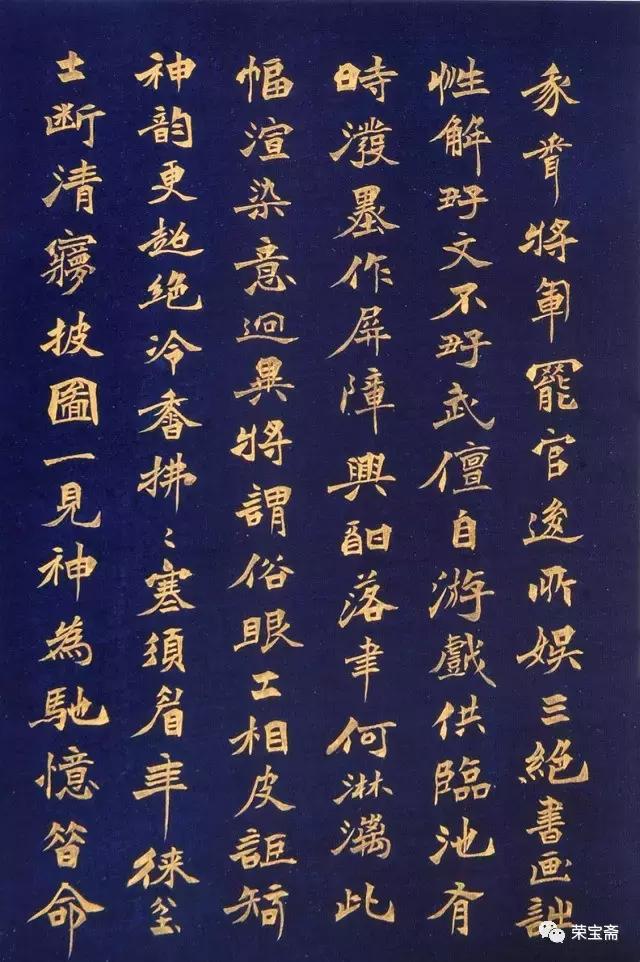 將軍罷官後所娛三絕書画詩
性解好文不好武儃自游戲供臨池有
時潑墨作屏障興酣落聿何淋漓此
幅渲染意迥異將謂俗眼工相皮詎知
神韵更超絶冷香拂〻寒須眉年徠
士断清寢披圖一見神為馳憶昔命
荣宝斋